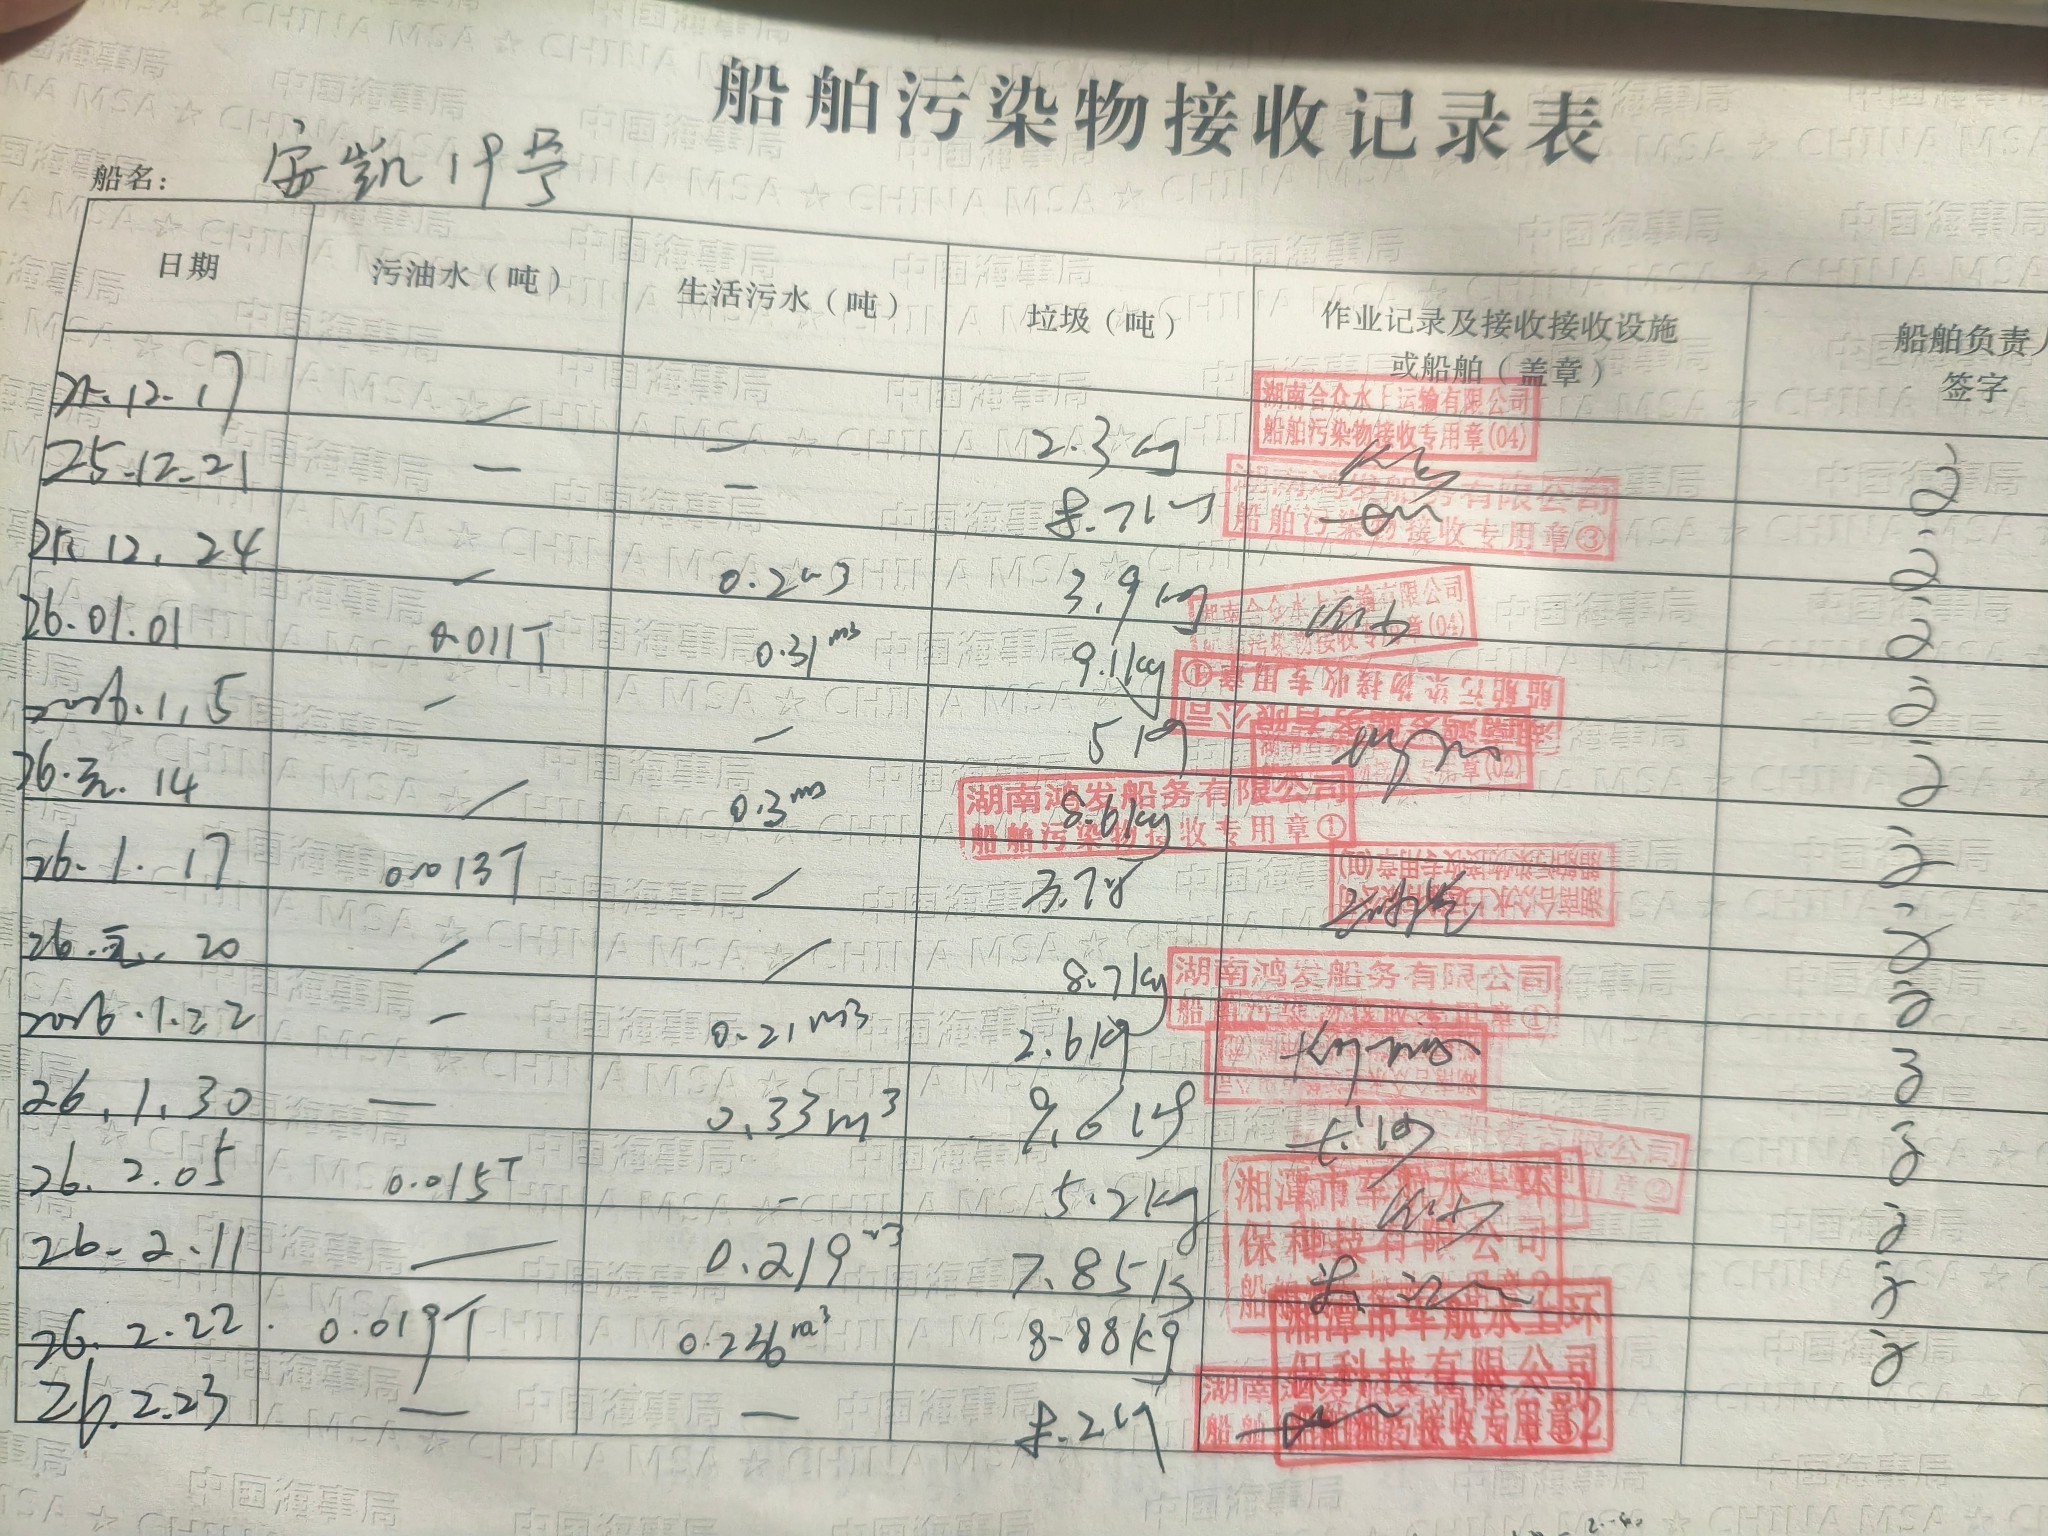 船舶污染物接收记录表
船名: 安凯19号
日期 污油水(吨) 生活污水(吨) 垃圾(吨) 作业记录及接收接收设施或船舶(盖章) 船舶负责人签字
25.12.17 — — 2.3kg 湖南合众水上运输有限公司 船舶污染物接收专用章(04)
25.12.21 — — 8.7kg 湖南鸿发船务有限公司 船舶污染物接收专用章③
25.12.24 — 0.2m3 3.9kg 湖南合众水上运输有限公司 船舶污染物接收专用章(04)
26.01.01 0.011T 0.31m3 9.1kg 湖南鸿发船务有限公司 船舶污染物接收专用章①
2026.1.5 — — 5kg 章(02)
26.元.14 / 0.3m3 8.6kg 湖南鸿发船务有限公司 船舶污染物接收专用章①
26.1.17 0.013T / 3.7kg 湖南合众水上运输有限公司 船舶污染物接收专用章
26.元.20 / / 8.7kg 湖南鸿发船务有限公司 船舶污染物接收专用章①
2026.1.22 — 0.21m3 2.6kg
26.1.30 — 0.33m3 9.6kg 船务有限公司 用章②
26.2.05 0.015T — 5.2kg
26.2.11 — 0.219m3 7.85kg 湘潭市军航水上环保科技有限公司
26.2.22 0.019T 0.236m3 8.88kg 湘潭市军航水上环保科技有限公司 接收专用章2
26.2.23 — — 8.2kg 湖南 船舶
中国海事局 CHINA MSA